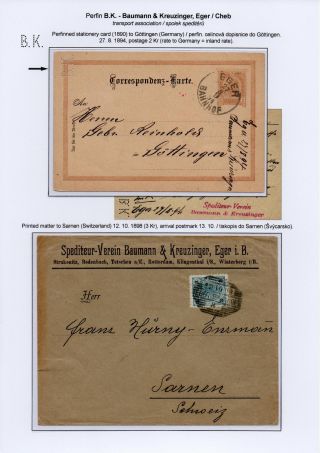 Perfin B.K. - Baumann & Kreuzinger, Eger / Cheb
transport association / spolek speditérů
Perfinned stationery card (1890) to Göttingen (Germany) / perfin. celinová dopisnice do Göttingen.
27. 8. 1894, postage 2 Kr (rate to Germany = inland rate).
B.K.
Correspondenz-Karte.
EGER
BAHNHOF
Herren
Gebr. Reinholds
Göttingen
Spediteur-Verein
Baumann & Kreuzinger
Printed matter to Sarnen (Switzerland) 12. 10. 1898 (3 Kr), arrival postmark 13. 10. / tiskopis do Sarnen (Švýcarsko).
Spediteur-Verein Baumann & Kreuzinger, Eger i. B.
Straknoitz, Bodenbach, Tetschen a. E., Rotterdam, Klingenthal i. S., Winterberg i. B.
Herr
Franz Hürny-Ensmann
Sarnen
Schweiz